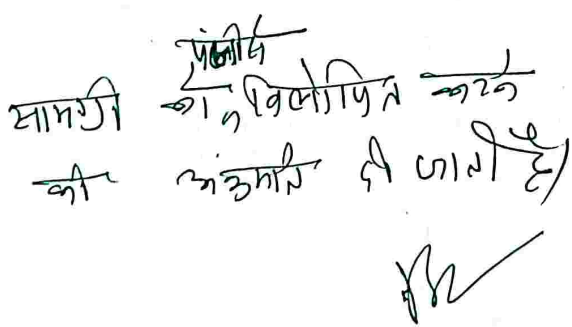 सामग्री को विलोपित करने
की अनुमति दी जाती है।